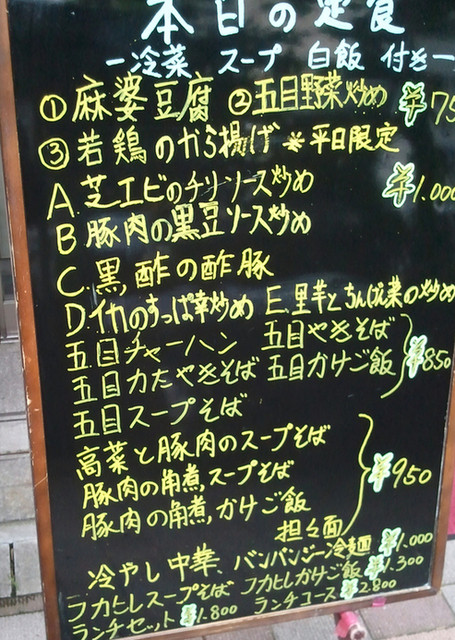 本日の定食
ー冷菜 スープ 白飯 付きー
①麻婆豆腐 ②五目野菜炒め ¥75
③若鶏のから揚げ ※平日限定
A.芝エビのチリソース炒め ¥1.000
B.豚肉の黒豆ソース炒め
C.黒酢の酢豚
D.イカのすっぱ辛炒め E.里芋とちんげん菜の炒め
五目チャーハン 五目やきそば
五目かたやきそば 五目かけご飯 ¥850
五目スープそば
高菜と豚肉のスープそば
豚肉の角煮,スープそば ¥950
豚肉の角煮,かけご飯
担々面
冷やし中華、バンバンジー冷麺 ¥1.000
フカヒレスープそば フカヒレかけご飯 ¥1.300
ランチセット ¥1.800 ランチコース ¥2.800